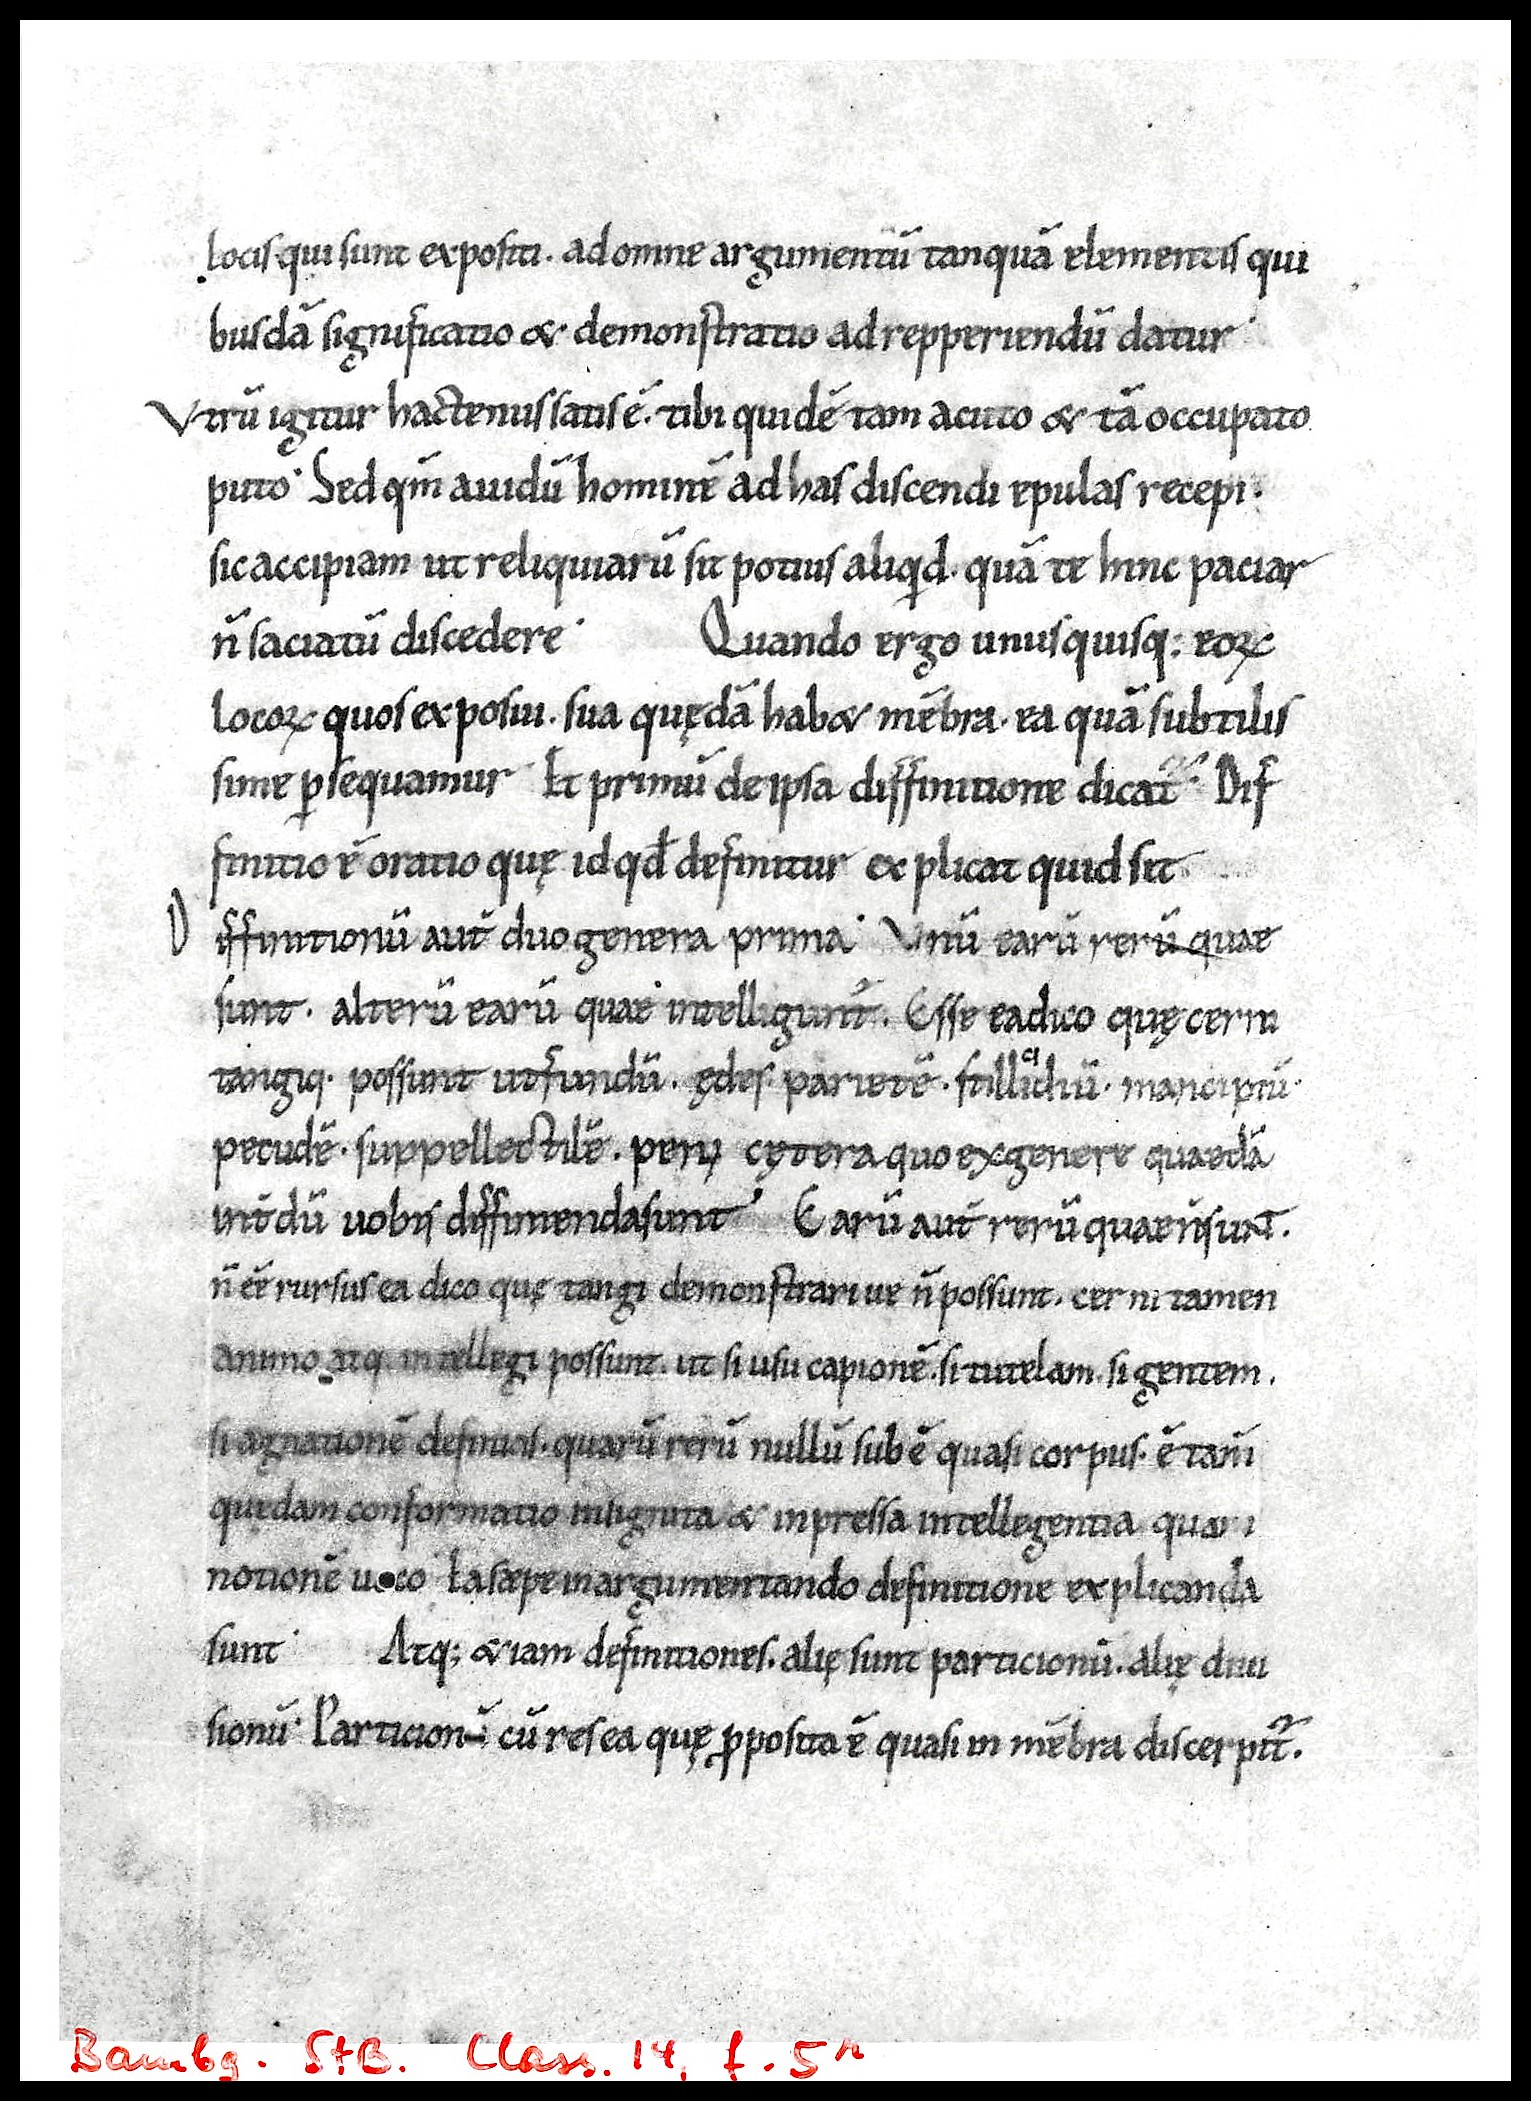 locis qui sunt expositi. ad omne argumentũ tanquã elementis qui
busdã significatio & demonstratio ad repperiendũ datur·
Vtrũ igitur hactenus satis ẽ. tibi quidẽ tam acuto & tã occupato
puto· Sed qm̃ auidũ hominẽ ad has discendi epulas recepi·
sic accipiam ut reliquiarũ sit potius aliqͥd. quã te hinc paciar
ñ saciatũ discedere· Quando ergo unusquisq: eoꝝ
locoꝝ quos exposui. sua quędã hab& mẽbra. ea quã subtilis
sime ꝑsequamur Et primũ de ipsa diffinitione dicat᷑· Dif
finitio ẽ oratio quę id qđ definitur explicat quid sit
Diffinitionũ aut̃ duo genera prima· Vnũ earũ rerũ quae
sunt. alterũ earũ quae intelligunt᷑. Esse ea dico quę cerni
tangiq. possunt ut fundũ. ędes parietẽ. stillicͥdiũ. mancipiũ·
pecudẽ. suppellectilẽ. penꝰ cętera quo ex genere quaedã
int̃dũ uobis diffinienda sunt· Earũ aut̃ rerũ quae ñ sunt.
ñ eẽ rursus ea dico quę tangi demonstrari ue ñ possunt. cerni tamen
animo atq. intellegi possunt. ut si usu capionẽ. si tutelam. si gentem.
si agnationẽ definias. quarũ rerũ nullũ sub ẽ quasi corpus. ẽ tam̃
quędam conformatio insignita & inpressa intellegentia quam
notionẽ uoco Ea sæpe in argumentando definitione explicanda
sunt· Atq; &iam definitiones. alię sunt particionũ. alię diui
sionũ· Particionũ cũ res ea quę ꝓposita ẽ quasi in mẽbra discerpit᷑.
Bambg. StB. Class. 14, f. 5r